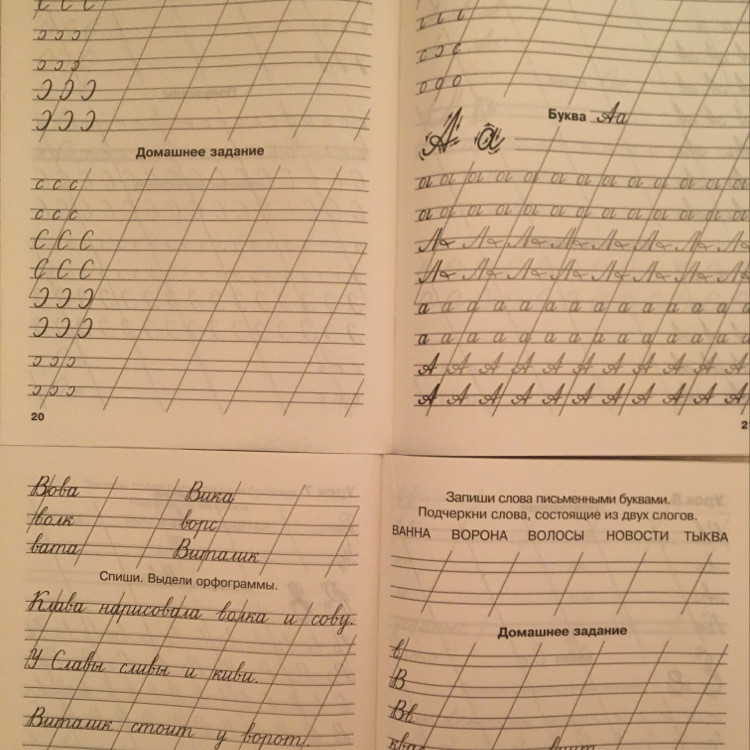 С С С
ɔ ɔ ɔ
ɔ ɔ ɔ
Ɔ Ɔ Ɔ
Ɔ Ɔ Ɔ
Домашнее задание
с с с
с с с
С С С
С С С
Ɔ Ɔ Ɔ
Ɔ Ɔ Ɔ
ɔ ɔ ɔ
ɔ ɔ ɔ
20
ι ι ι
о о о
Буква Аа
А а
а а а а а а а а а а а а а а
а а а а а а а а а а а а а а
А А А А А А А А А А А
А А А А А А А А А А А
Вова Вика
волк ворс
вата Виталик
Спиши. Выдели орфограммы.
Клава нарисовала волка и сову.
У Славы сливы и киви.
Виталик стоит у ворот.
Запиши слова письменными буквами.
Подчеркни слова, состоящие из двух слогов.
ВАННА ВОРОНА ВОЛОСЫ НОВОСТИ ТЫКВА
Домашнее задание
в
В
Вв